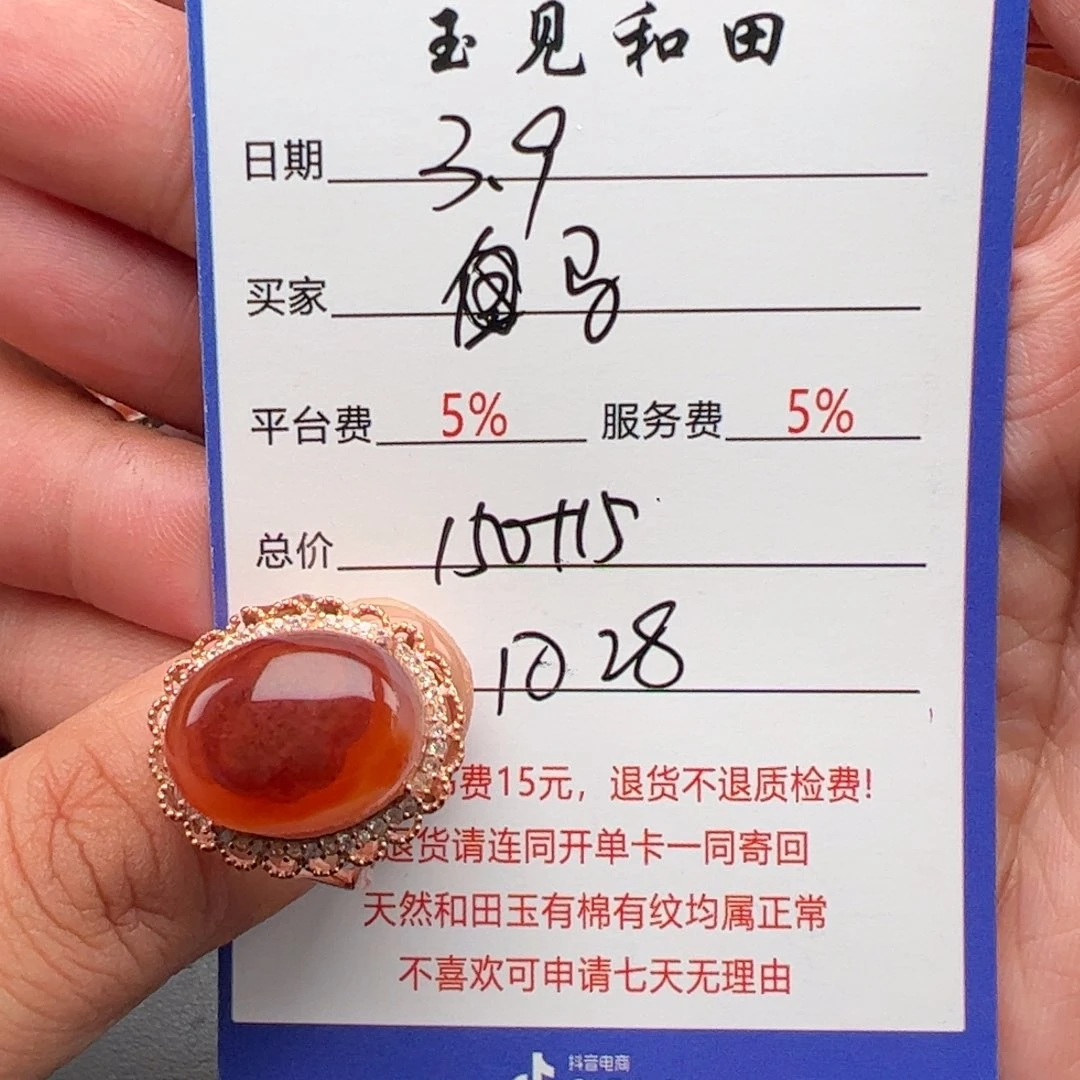 玉见和田
日期 3.9
买家 马
平台费 5% 服务费 5%
总价 150+15
1028
费15元，退货不退质检费!
退货请连同开单卡一同寄回
天然和田玉有棉有纹均属正常
不喜欢可申请七天无理由
抖音电商